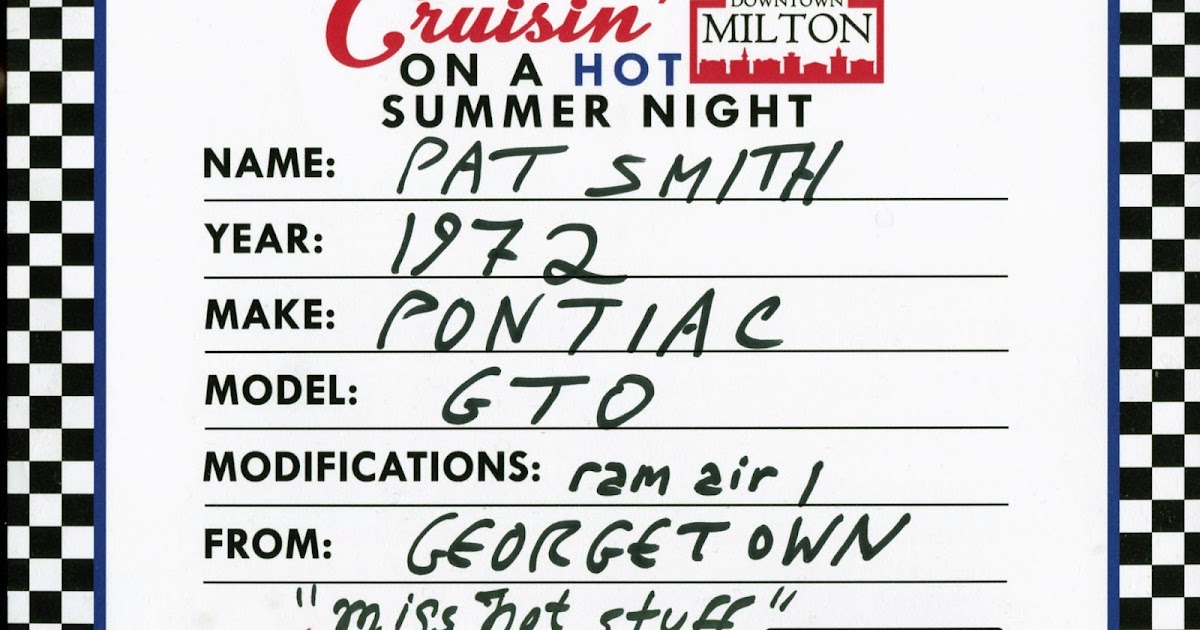 Cruisin'
DOWNTOWN
MILTON
ON A HOT
SUMMER NIGHT
NAME: PAT SMITH
YEAR: 1972
MAKE: PONTIAC
MODEL: GTO
MODIFICATIONS: ram air 1
FROM: GEORGETOWN
"miss hot stuff"